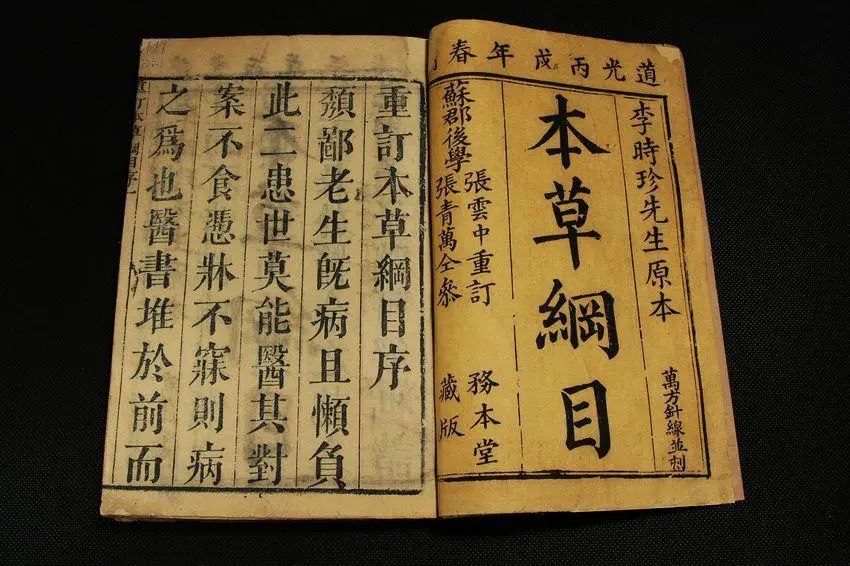 道光丙戌年春
李時珍先生原本
萬方針線並刻
本草綱目
張雲中重訂
蘇郡後學
張青萬仝參
務本堂
藏版
重訂本草綱目序
頽鄙老生旣病且懶負
此二患世莫能醫其對
案不食憑牀不寐則病
之爲也醫書堆於前而